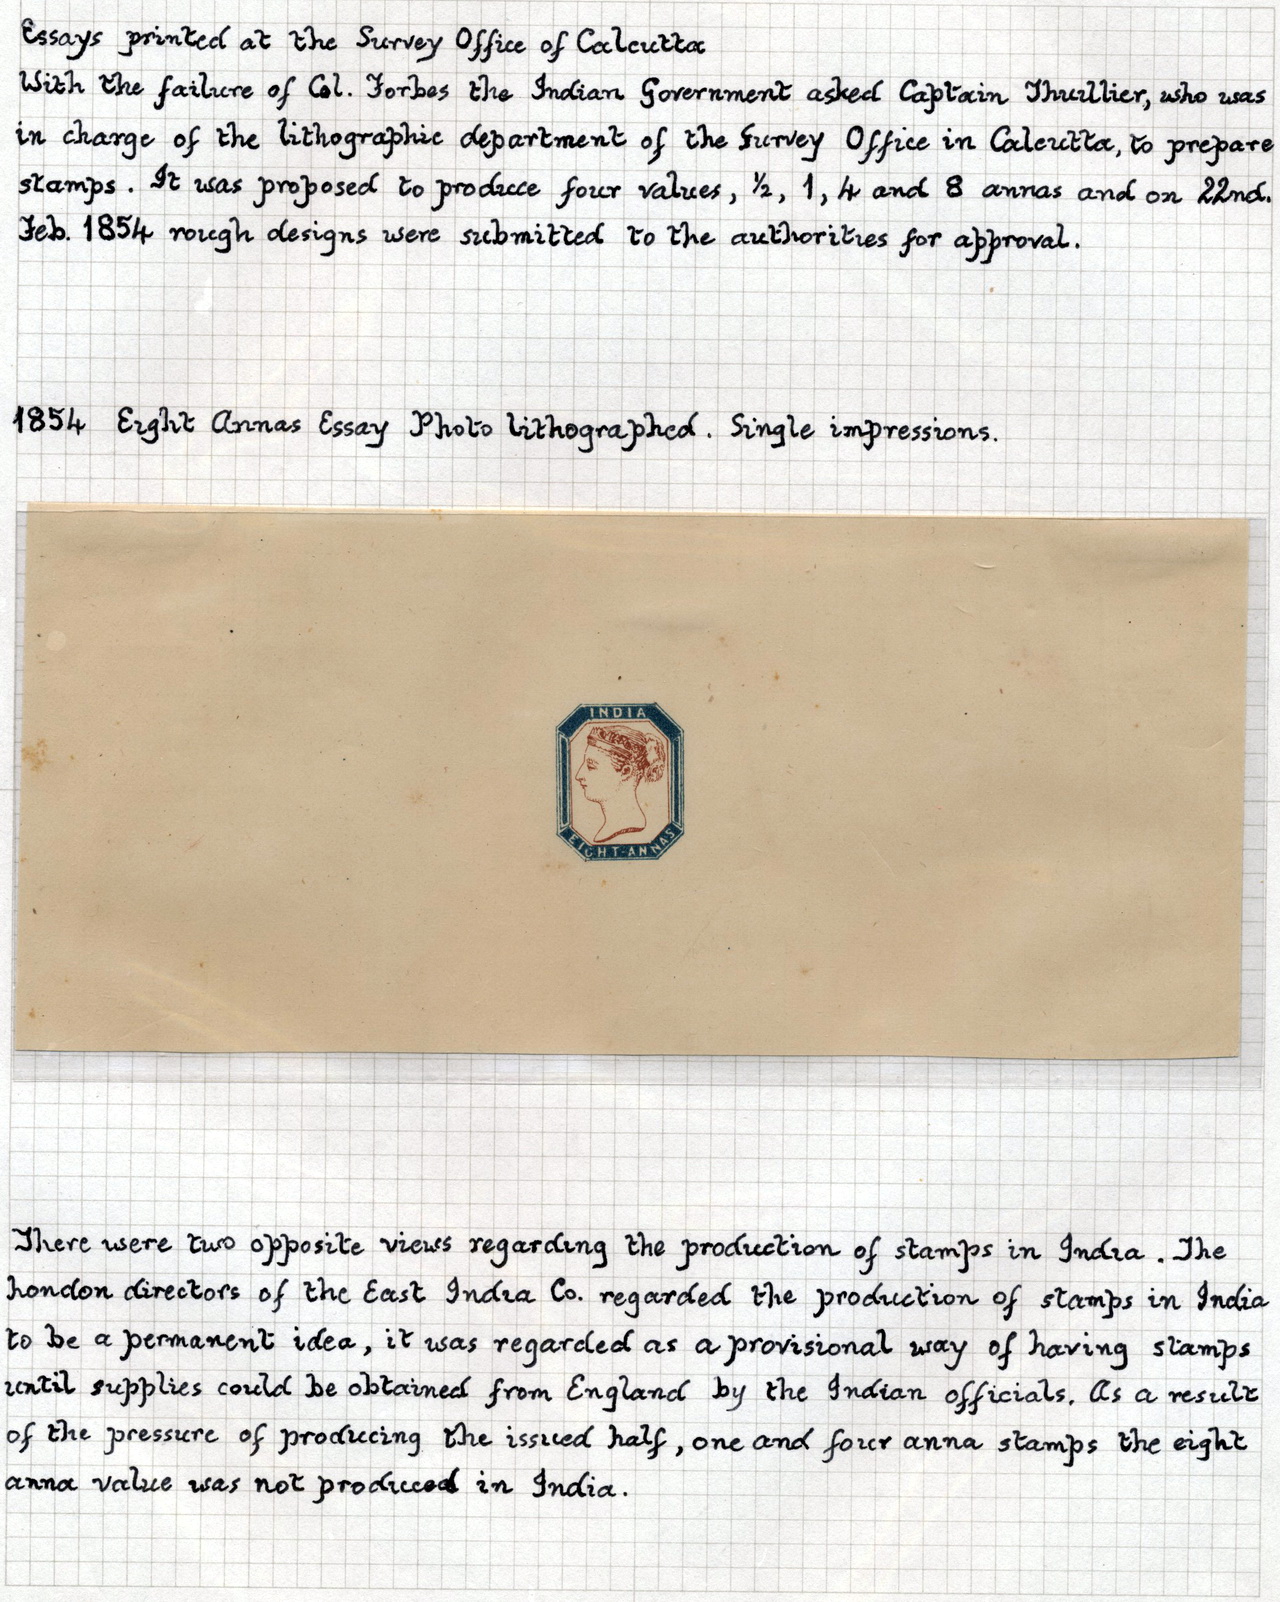 Essays printed at the Survey Office of Calcutta
With the failure of Col. Forbes the Indian Government asked Captain Thuillier, who was
in charge of the lithographic department of the Survey Office in Calcutta, to prepare
stamps. It was proposed to produce four values, ½, 1, 4 and 8 annas and on 22nd.
Feb. 1854 rough designs were submitted to the authorities for approval.
1854 Eight Annas Essay Photo lithographed. Single impressions.
INDIA
EIGHT·ANNAS
There were two opposite views regarding the production of stamps in India. The
London directors of the East India Co. regarded the production of stamps in India
to be a permanent idea, it was regarded as a provisional way of having stamps
until supplies could be obtained from England by the Indian officials. As a result
of the pressure of producing the issued half, one and four anna stamps the eight
anna value was not produced in India.